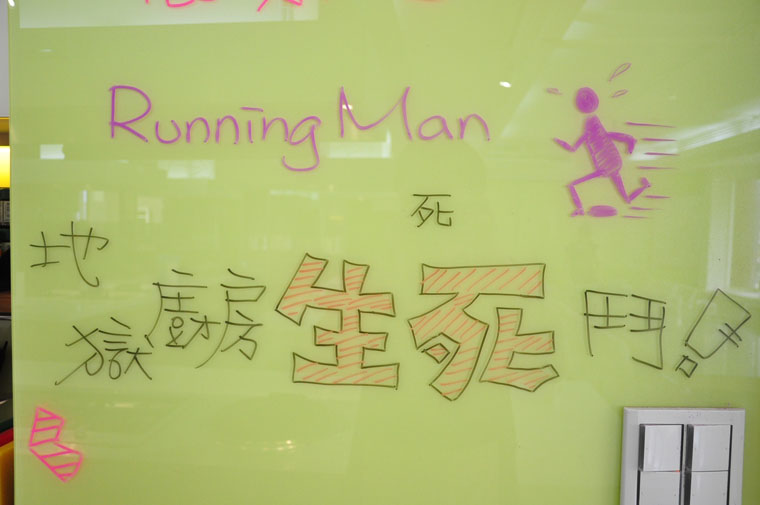 Running Man
死
地獄廚房生死鬥!